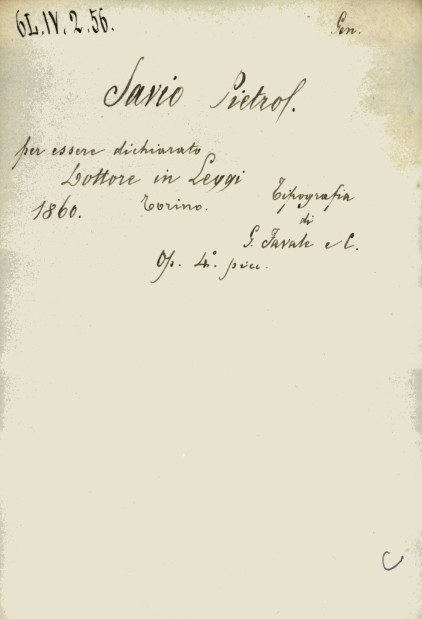 6L.IV.2.56.
Gen.
Savio Pietro.
per essere dichiarato
Dottore in Leggi
1860. Torino. Tipografia
di
G. Favale e C.
Op. 4° picc.
C